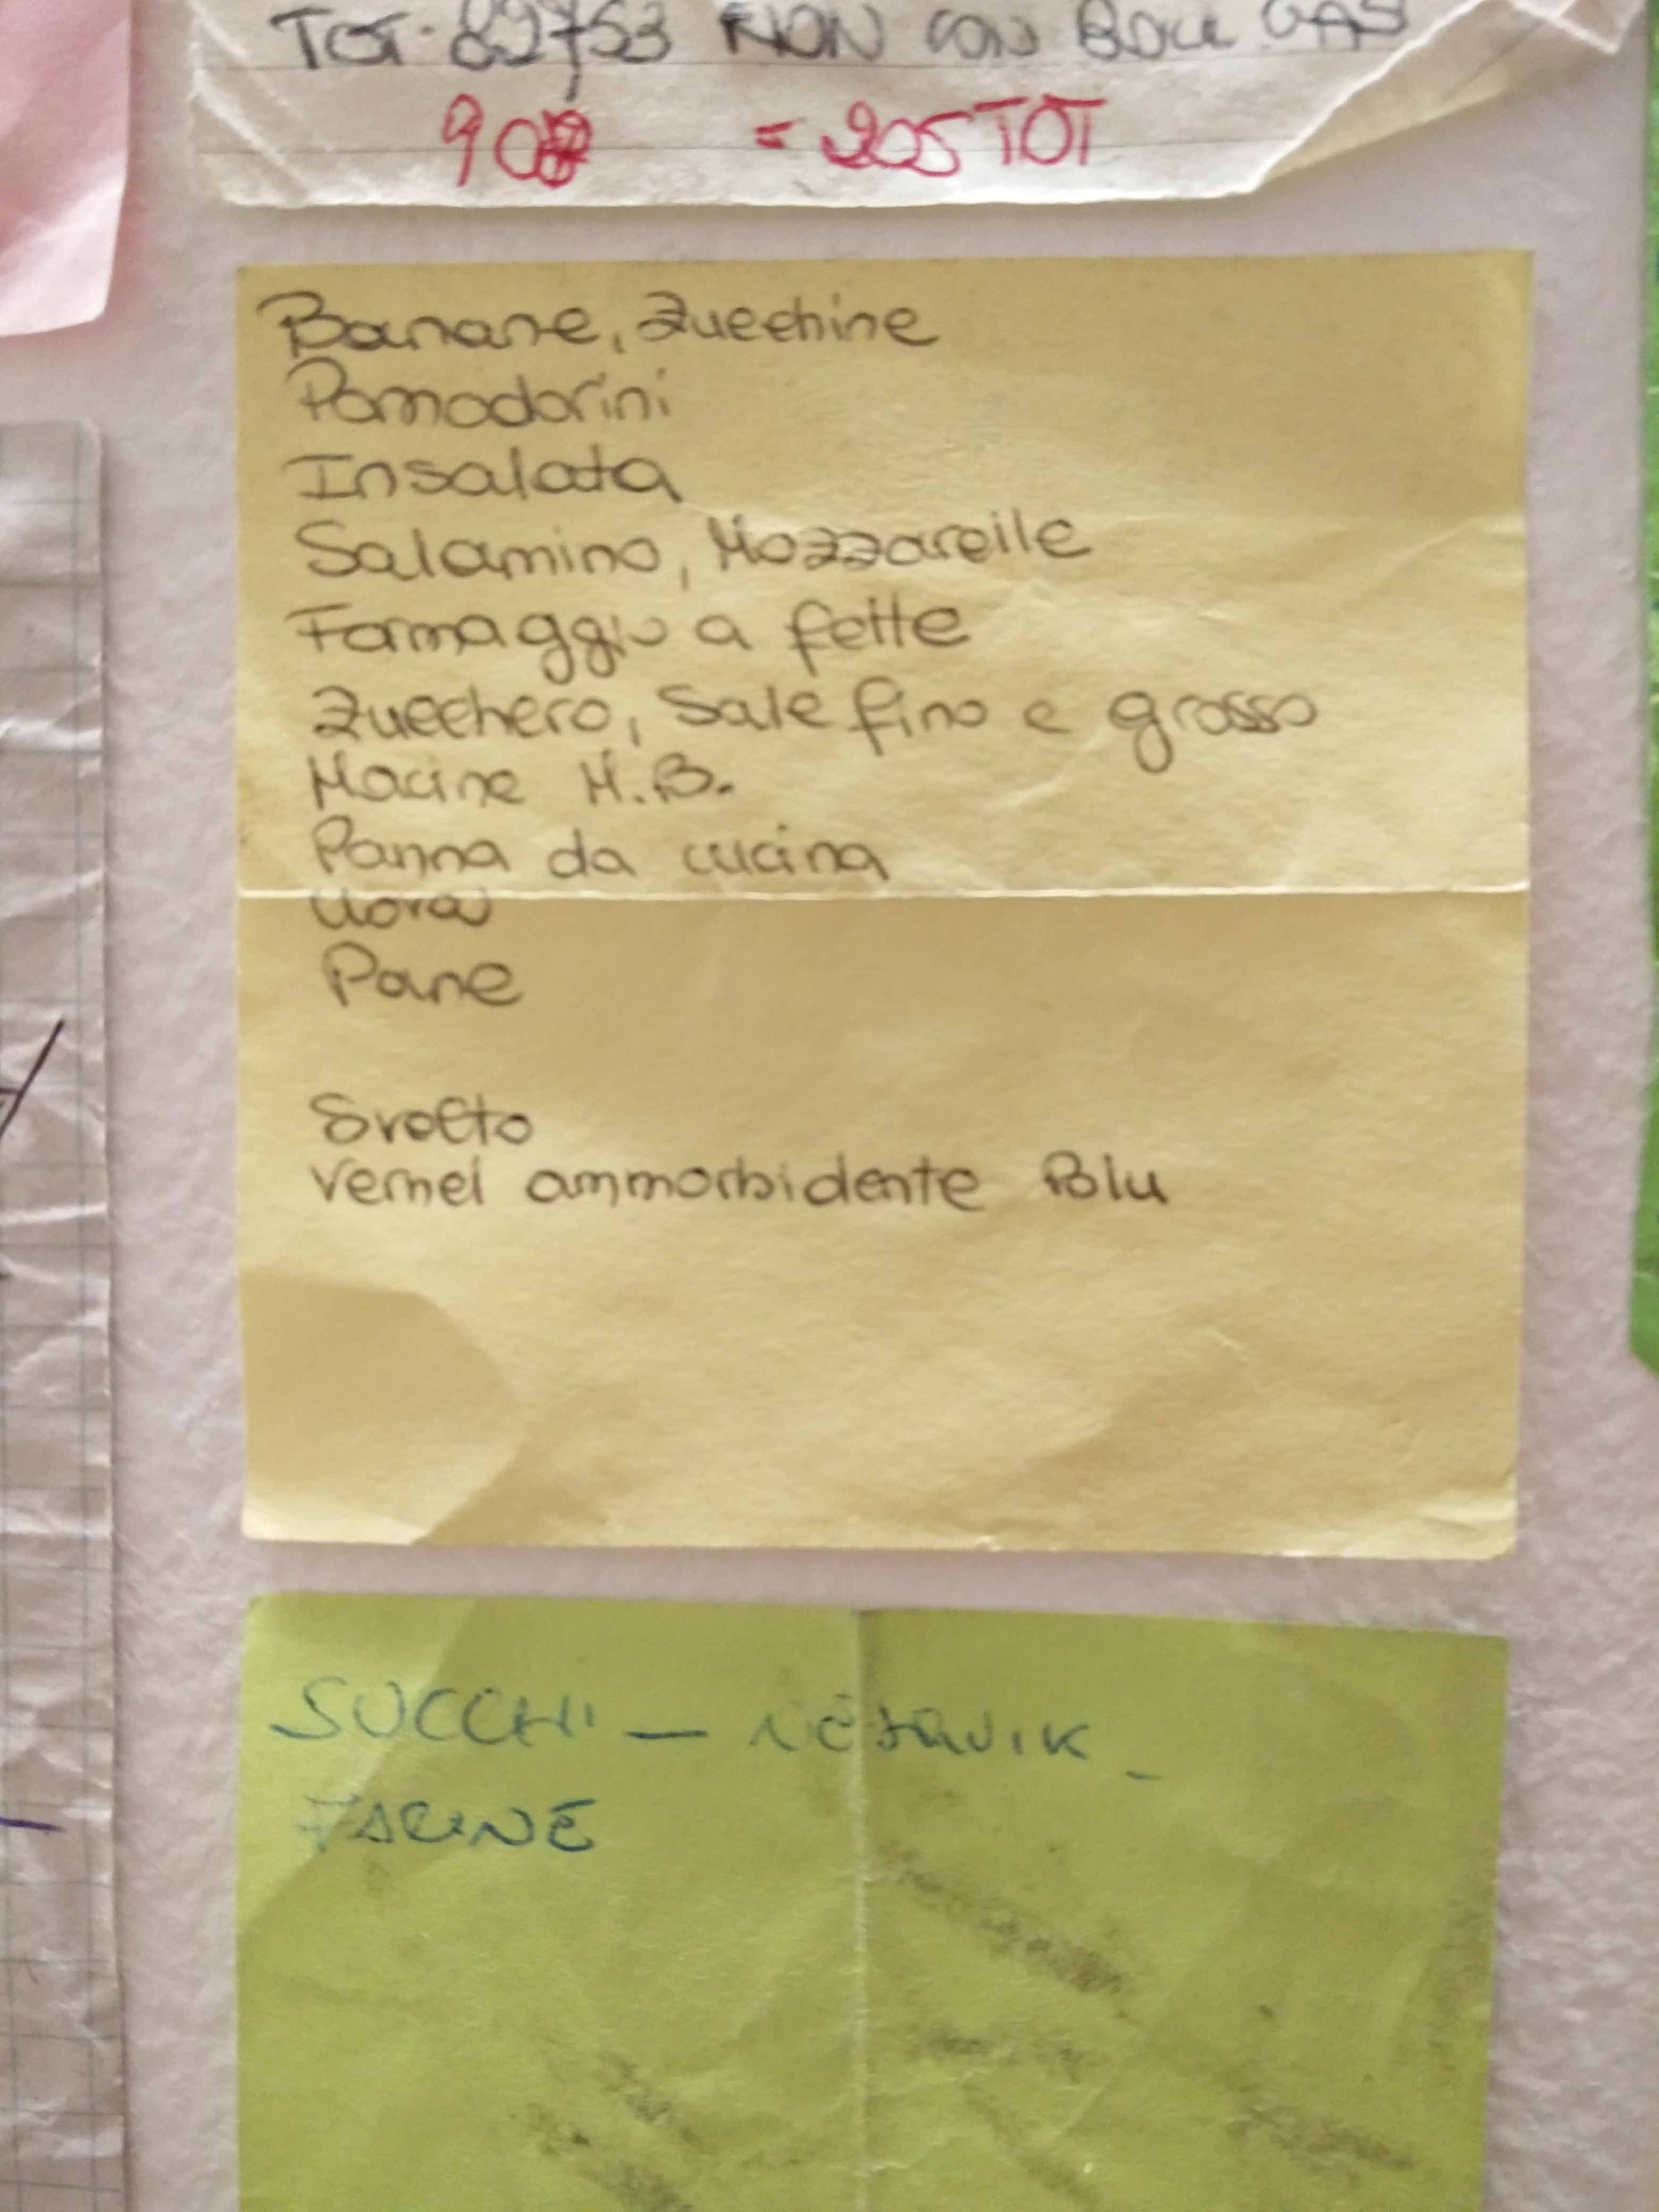 TOT. 82753 NON CON BOLL GAS
90 = 205 TOT
Banane, Zucchine
Pomodorini
Insalata
Salamino, Mozzarelle
Formaggio a fette
Zucchero, Sale fino e grosso
Macine M.B.
Panna da cucina
Uova
Pane
Svelto
Vernel ammorbidente Blu
SUCCHI —
FARINE